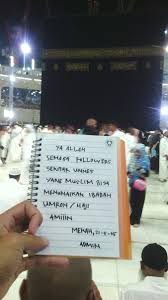 YA ALLAH
SEMOGA FOLLOWERS
SEPUTAR UNNES
YANG MUSLIM BISA
MENUNAIKAN IBADAH
UMROH / HAJI
AMIIIN
MEKAH, 21-5-15
ADMIN